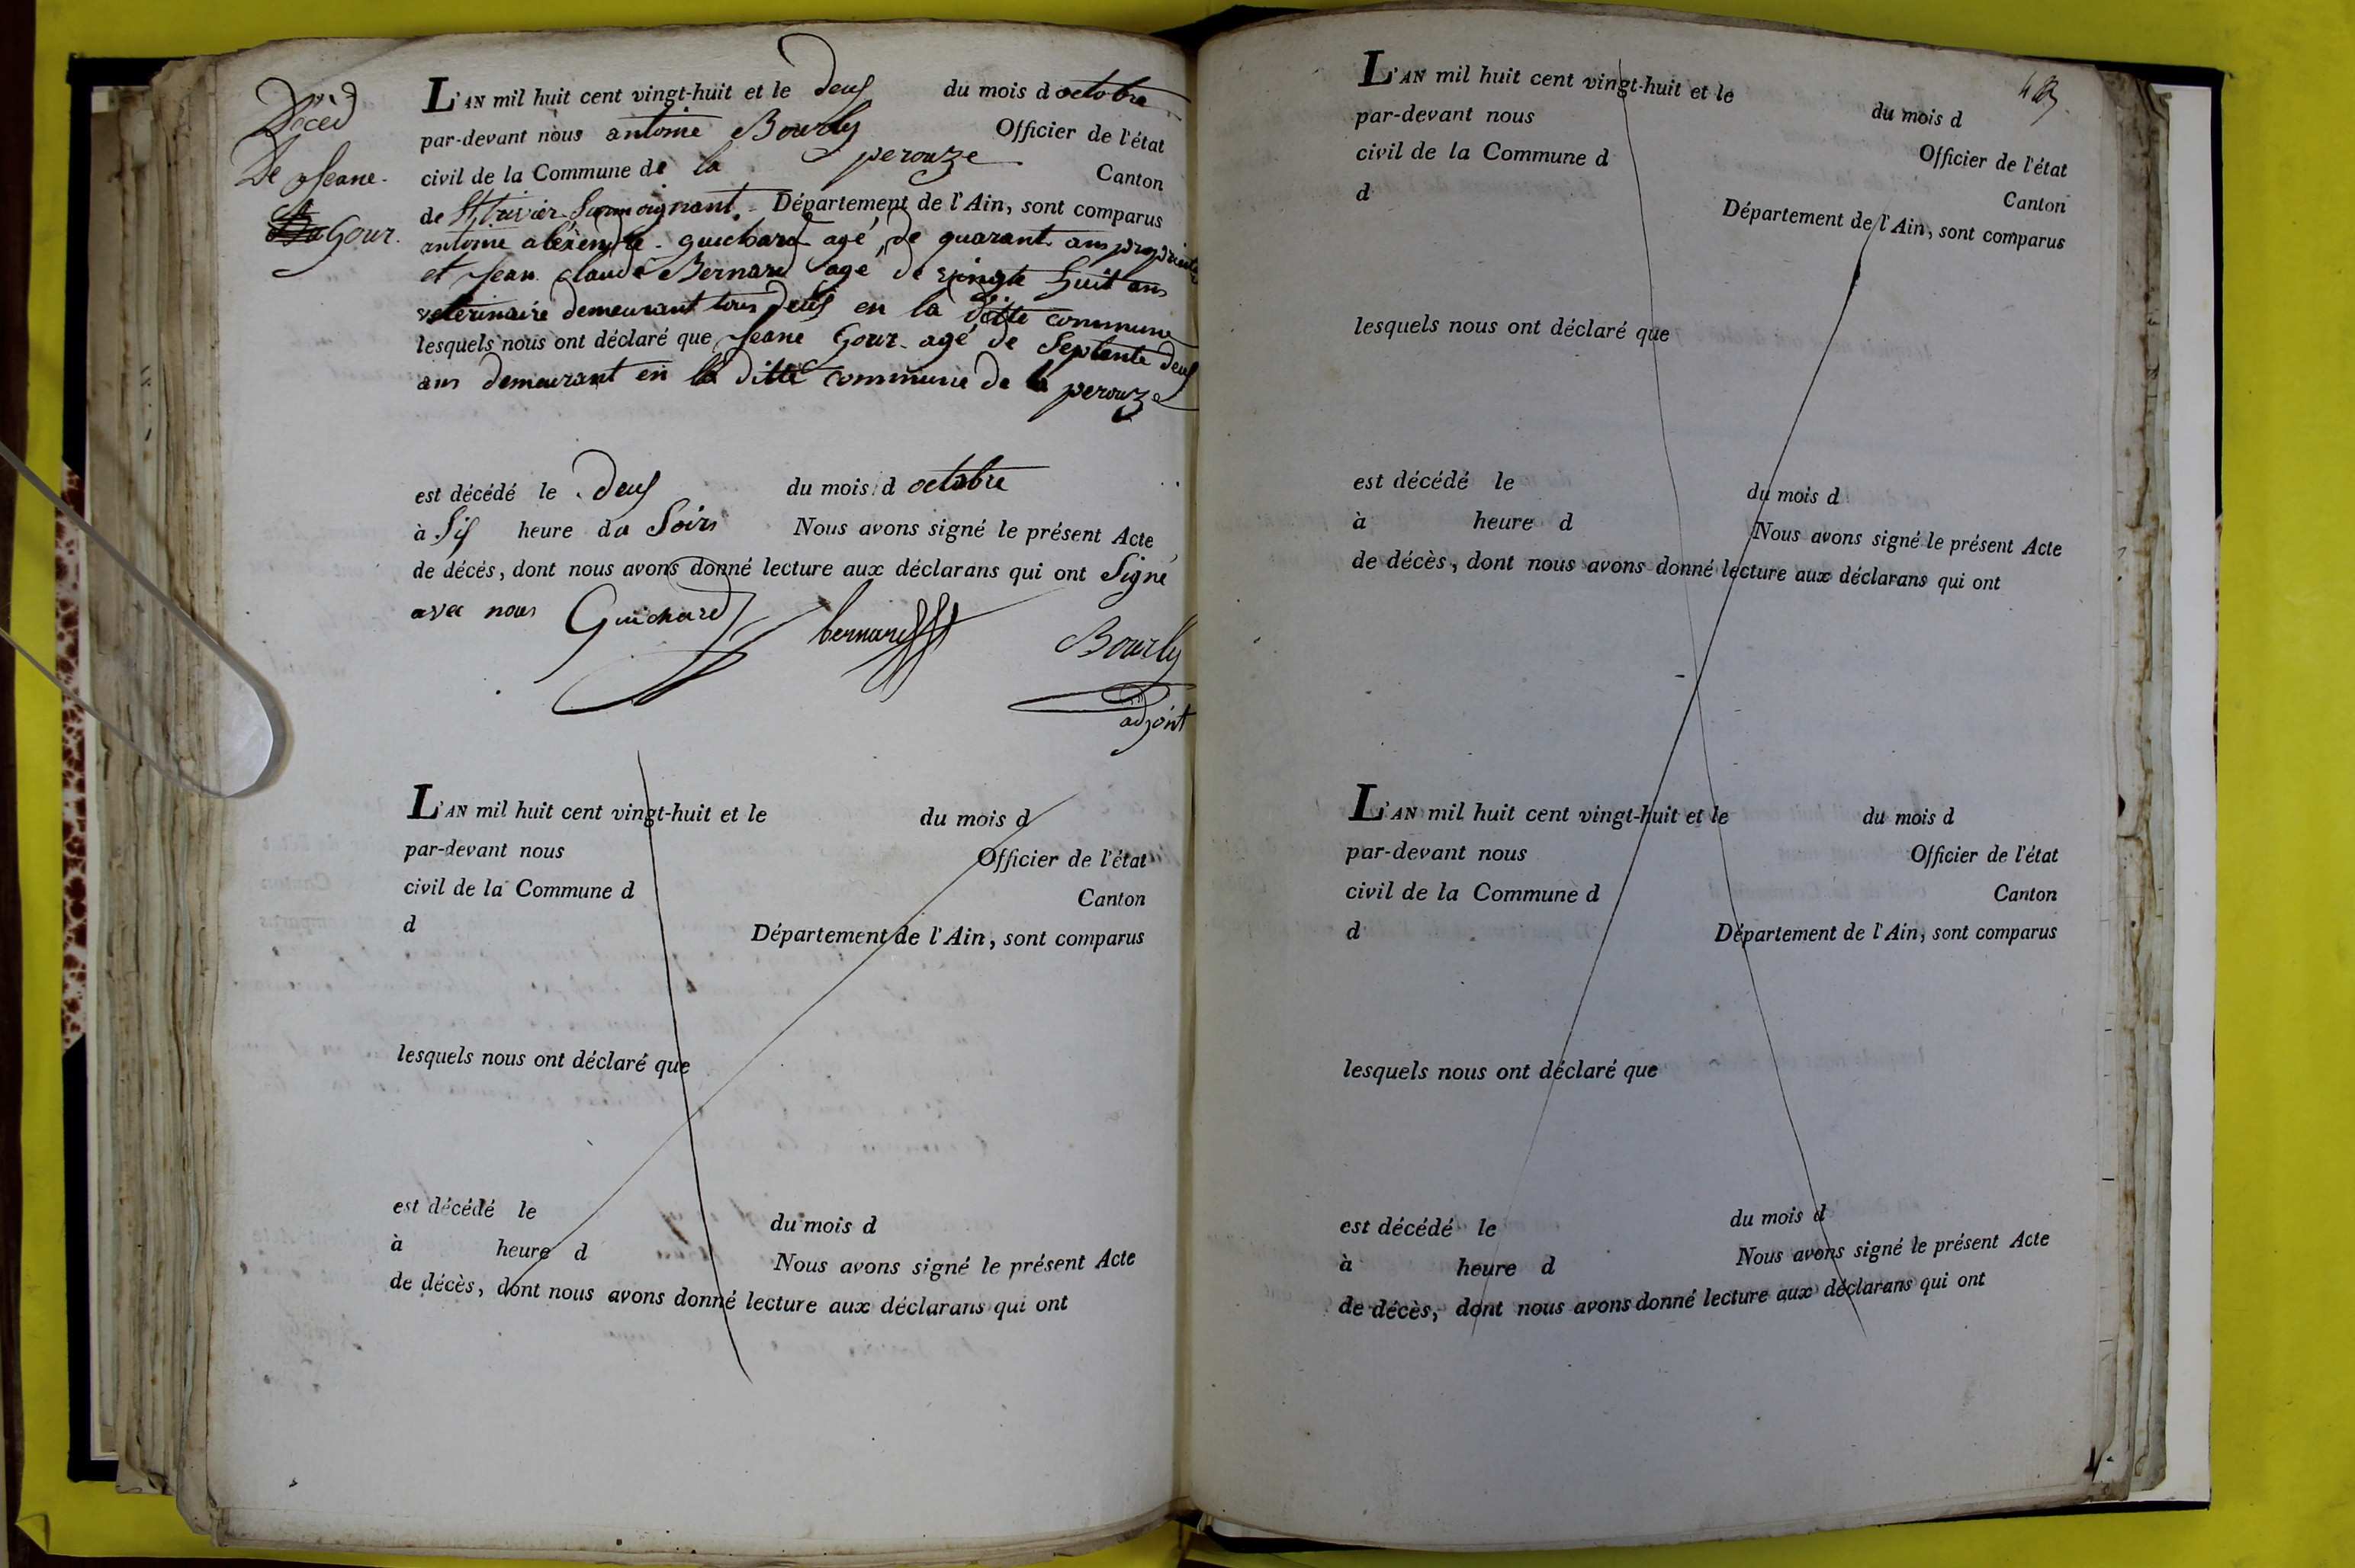 Déced
De Jeane
Gour.
L'AN mil huit cent vingt-huit et le deux du mois d octobre
par-devant nous antoine Bourly Officier de l'état
civil de la Commune de la perouze Canton
de St trivier Sur moignant. Département de l'Ain, sont comparus
antoine aléxendre guichard agé de quarant ans propriétaire
et Jean claude Bernard agé de vingte huit ans
veterinaire demeurant tous deux en la ditte commune
lesquels nous ont déclaré que Jeane Gour agé de Septente deux
ans demeurant en la ditte commune de la perouze
est décédé le deux du mois d octobre
à Six heure du Soire Nous avons signé le présent Acte
de décès, dont nous avons donné lecture aux déclarans qui ont Signé
avec nous Guichard bernard Bourly
adjoint
L'AN mil huit cent vingt-huit et le du mois d
par-devant nous Officier de l'état
civil de la Commune d Canton
d Département de l'Ain, sont comparus
lesquels nous ont déclaré que
est décédé le du mois d
à heure d Nous avons signé le présent Acte
de décès, dont nous avons donné lecture aux déclarans qui ont
L'AN mil huit cent vingt-huit et le du mois d
par-devant nous Officier de l'état
civil de la Commune d Canton
d Département de l'Ain, sont comparus
lesquels nous ont déclaré que
est décédé le du mois d
à heure d Nous avons signé le présent Acte
de décès, dont nous avons donné lecture aux déclarans qui ont
L'AN mil huit cent vingt-huit et le du mois d
par-devant nous Officier de l'état
civil de la Commune d Canton
d Département de l'Ain, sont comparus
lesquels nous ont déclaré que
est décédé le du mois d
à heure d Nous avons signé le présent Acte
de décès, dont nous avons donné lecture aux déclarans qui ont